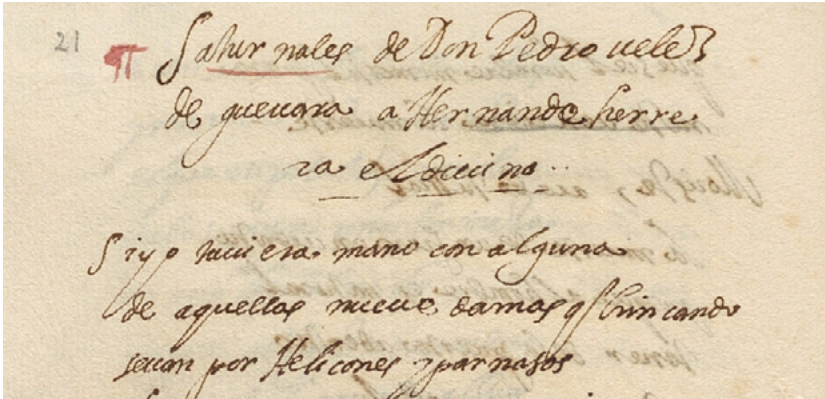 21
¶ Saturnales de Don Pedro velez
de gueuara a Hernando herre
ra el diuino..
Si yo tuuiera mano con alguna
de aquellas nueue damas q̃ brincando
se uan por Helicones y parnasos